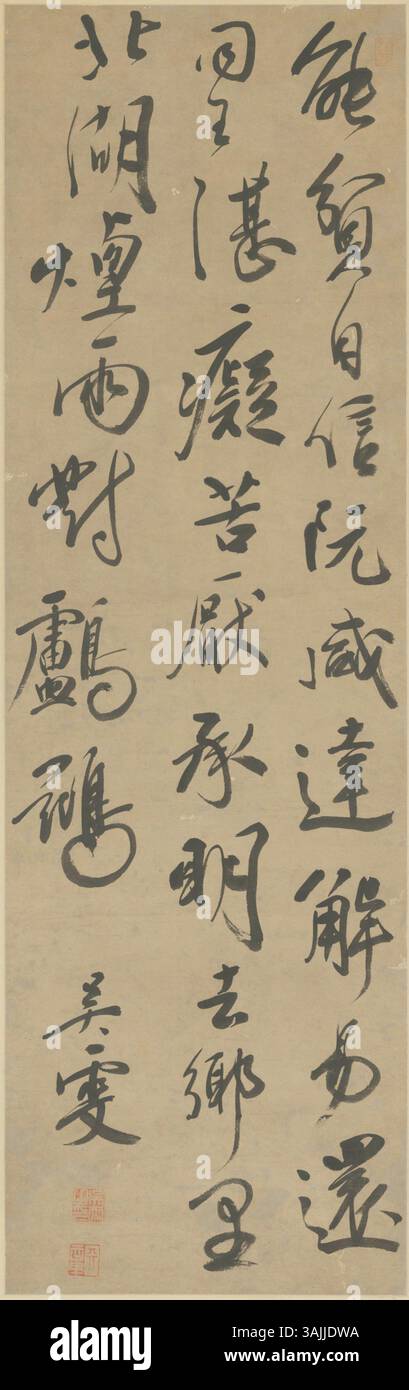 能貧自信阮咸達解易還
同王湛癡苦厭承明去鄉里
北湖煙雨對鸕鶿
吳雯
alamy
alamy
Image ID: 3AJJDWA
www.alamy.com